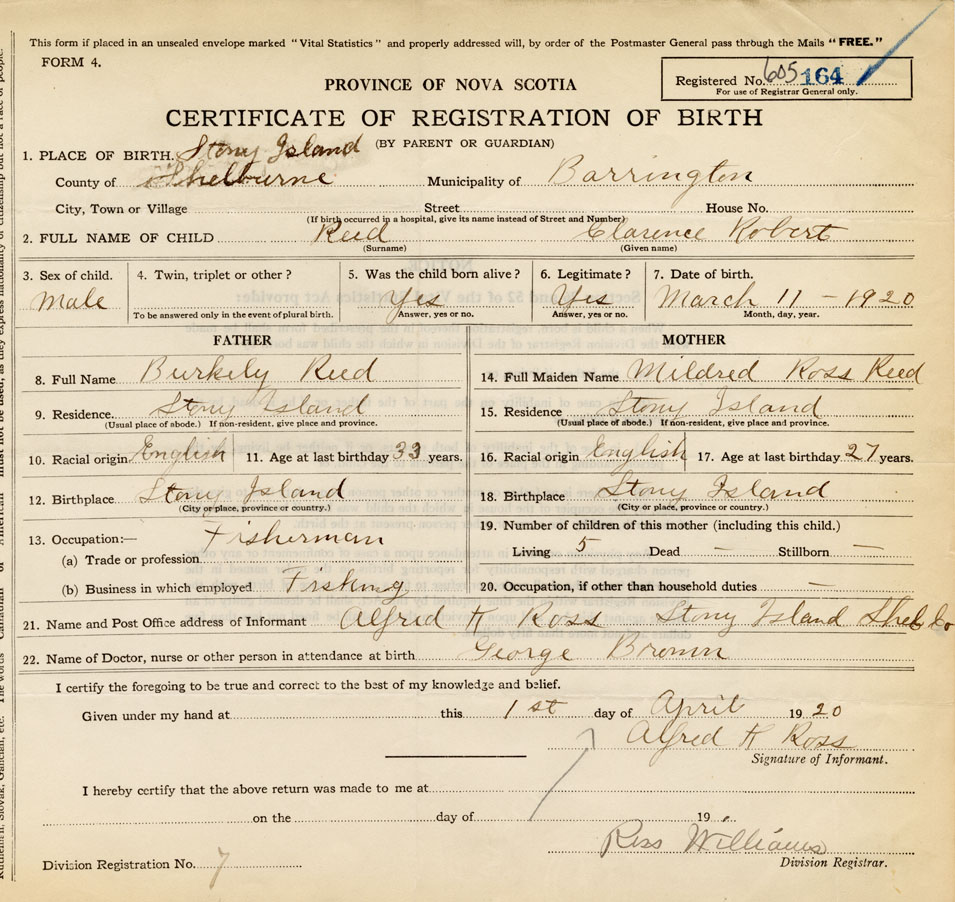 This form if placed in an unsealed envelope marked "Vital Statistics" and properly addressed will, by order of the Postmaster General pass through the Mails "FREE."
FORM 4.
Registered No. 605 164
For use of Registrar General only.
PROVINCE OF NOVA SCOTIA
CERTIFICATE OF REGISTRATION OF BIRTH
(BY PARENT OR GUARDIAN)
1. PLACE OF BIRTH. Stony Island
County of Shelburne Municipality of Barrington
City, Town or Village Street House No.
(If birth occurred in a hospital, give its name instead of Street and Number)
2. FULL NAME OF CHILD Reed Clarence Robert
(Surname) (Given name)
3. Sex of child. 4. Twin, triplet or other? 5. Was the child born alive? 6. Legitimate? 7. Date of birth.
Male Yes Yes March 11 - 1920
To be answered only in the event of plural birth. Answer, yes or no. Answer, yes or no. Month, day, year.
FATHER MOTHER
8. Full Name Burkely Reed 14. Full Maiden Name Mildred Ross Reed
9. Residence. Stony Island 15. Residence Stony Island
(Usual place of abode.) If non-resident, give place and province. (Usual place of abode.) If non-resident, give place and province.
10. Racial origin English 11. Age at last birthday 33 years. 16. Racial origin English 17. Age at last birthday 27 years.
12. Birthplace Stony Island 18. Birthplace Stony Island
(City or place, province or country.) (City or place, province or country.)
13. Occupation:— Fisherman 19. Number of children of this mother (including this child.)
(a) Trade or profession Living 5 Dead — Stillborn —
(b) Business in which employed Fishing 20. Occupation, if other than household duties —
21. Name and Post Office address of Informant Alfred K Ross Stony Island Shelb Co
22. Name of Doctor, nurse or other person in attendance at birth George Brown
I certify the foregoing to be true and correct to the best of my knowledge and belief.
Given under my hand at this 1st day of April 1920
Alfred K Ross
Signature of Informant.
I hereby certify that the above return was made to me at
on the day of 19
Ross Williams
Division Registration No. 7 Division Registrar.